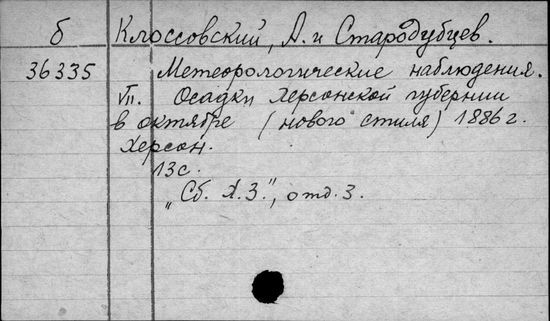 б Клоссовский, А. и Стародубцев.
36335 Метеорологические наблюдения.
VII. Осадки Херсонской губернии
в октябре (нового стиля) 1886 г.
Херсон.
13 с.
„Сб. Х.З.", отд. 3.